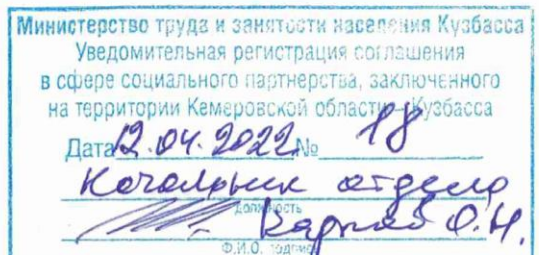 Министерство труда и занятости населения Кузбасса
Уведомительная регистрация соглашения
в сфере социального партнерства, заключенного
на территории Кемеровской области – Кузбасса
Дата 12.04.2022 № 18
Начальник отдела
должность
О.Н.
Ф.И.О. подпись